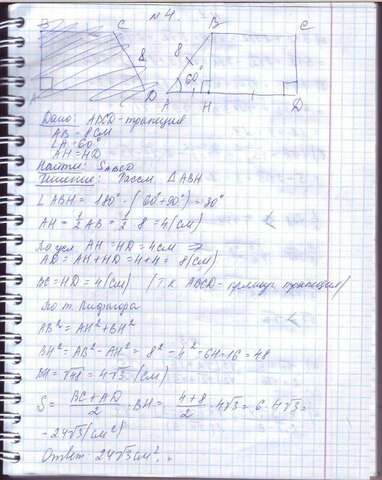 №4.
B C B C
8 8
60°
A D A H D
Дано: ABCD - трапеция
AB = 8 см
∠A = 60°
AH = HD
Найти: S ABCD
Решение: Рассм. △ABH
∠ABH = 180° - (60° + 90°) = 30°
AH = 1/2 AB = 1/2 · 8 = 4 (см)
По усл. AH = HD = 4 см ⇒
AD = AH + HD = 4 + 4 = 8 (см)
BC = HD = 4 (см) (т.к. ABCD - прямоуг. трапеция)
По т. Пифагора
AB² = AH² + BH²
BH² = AB² - AH² = 8² - 4² = 64 - 16 = 48
BH = √48 = 4√3 (см)
S = (BC + AD)/2 · BH = (4 + 8)/2 · 4√3 = 6 · 4√3 =
= 24√3 (см²)
Ответ: 24√3 см².